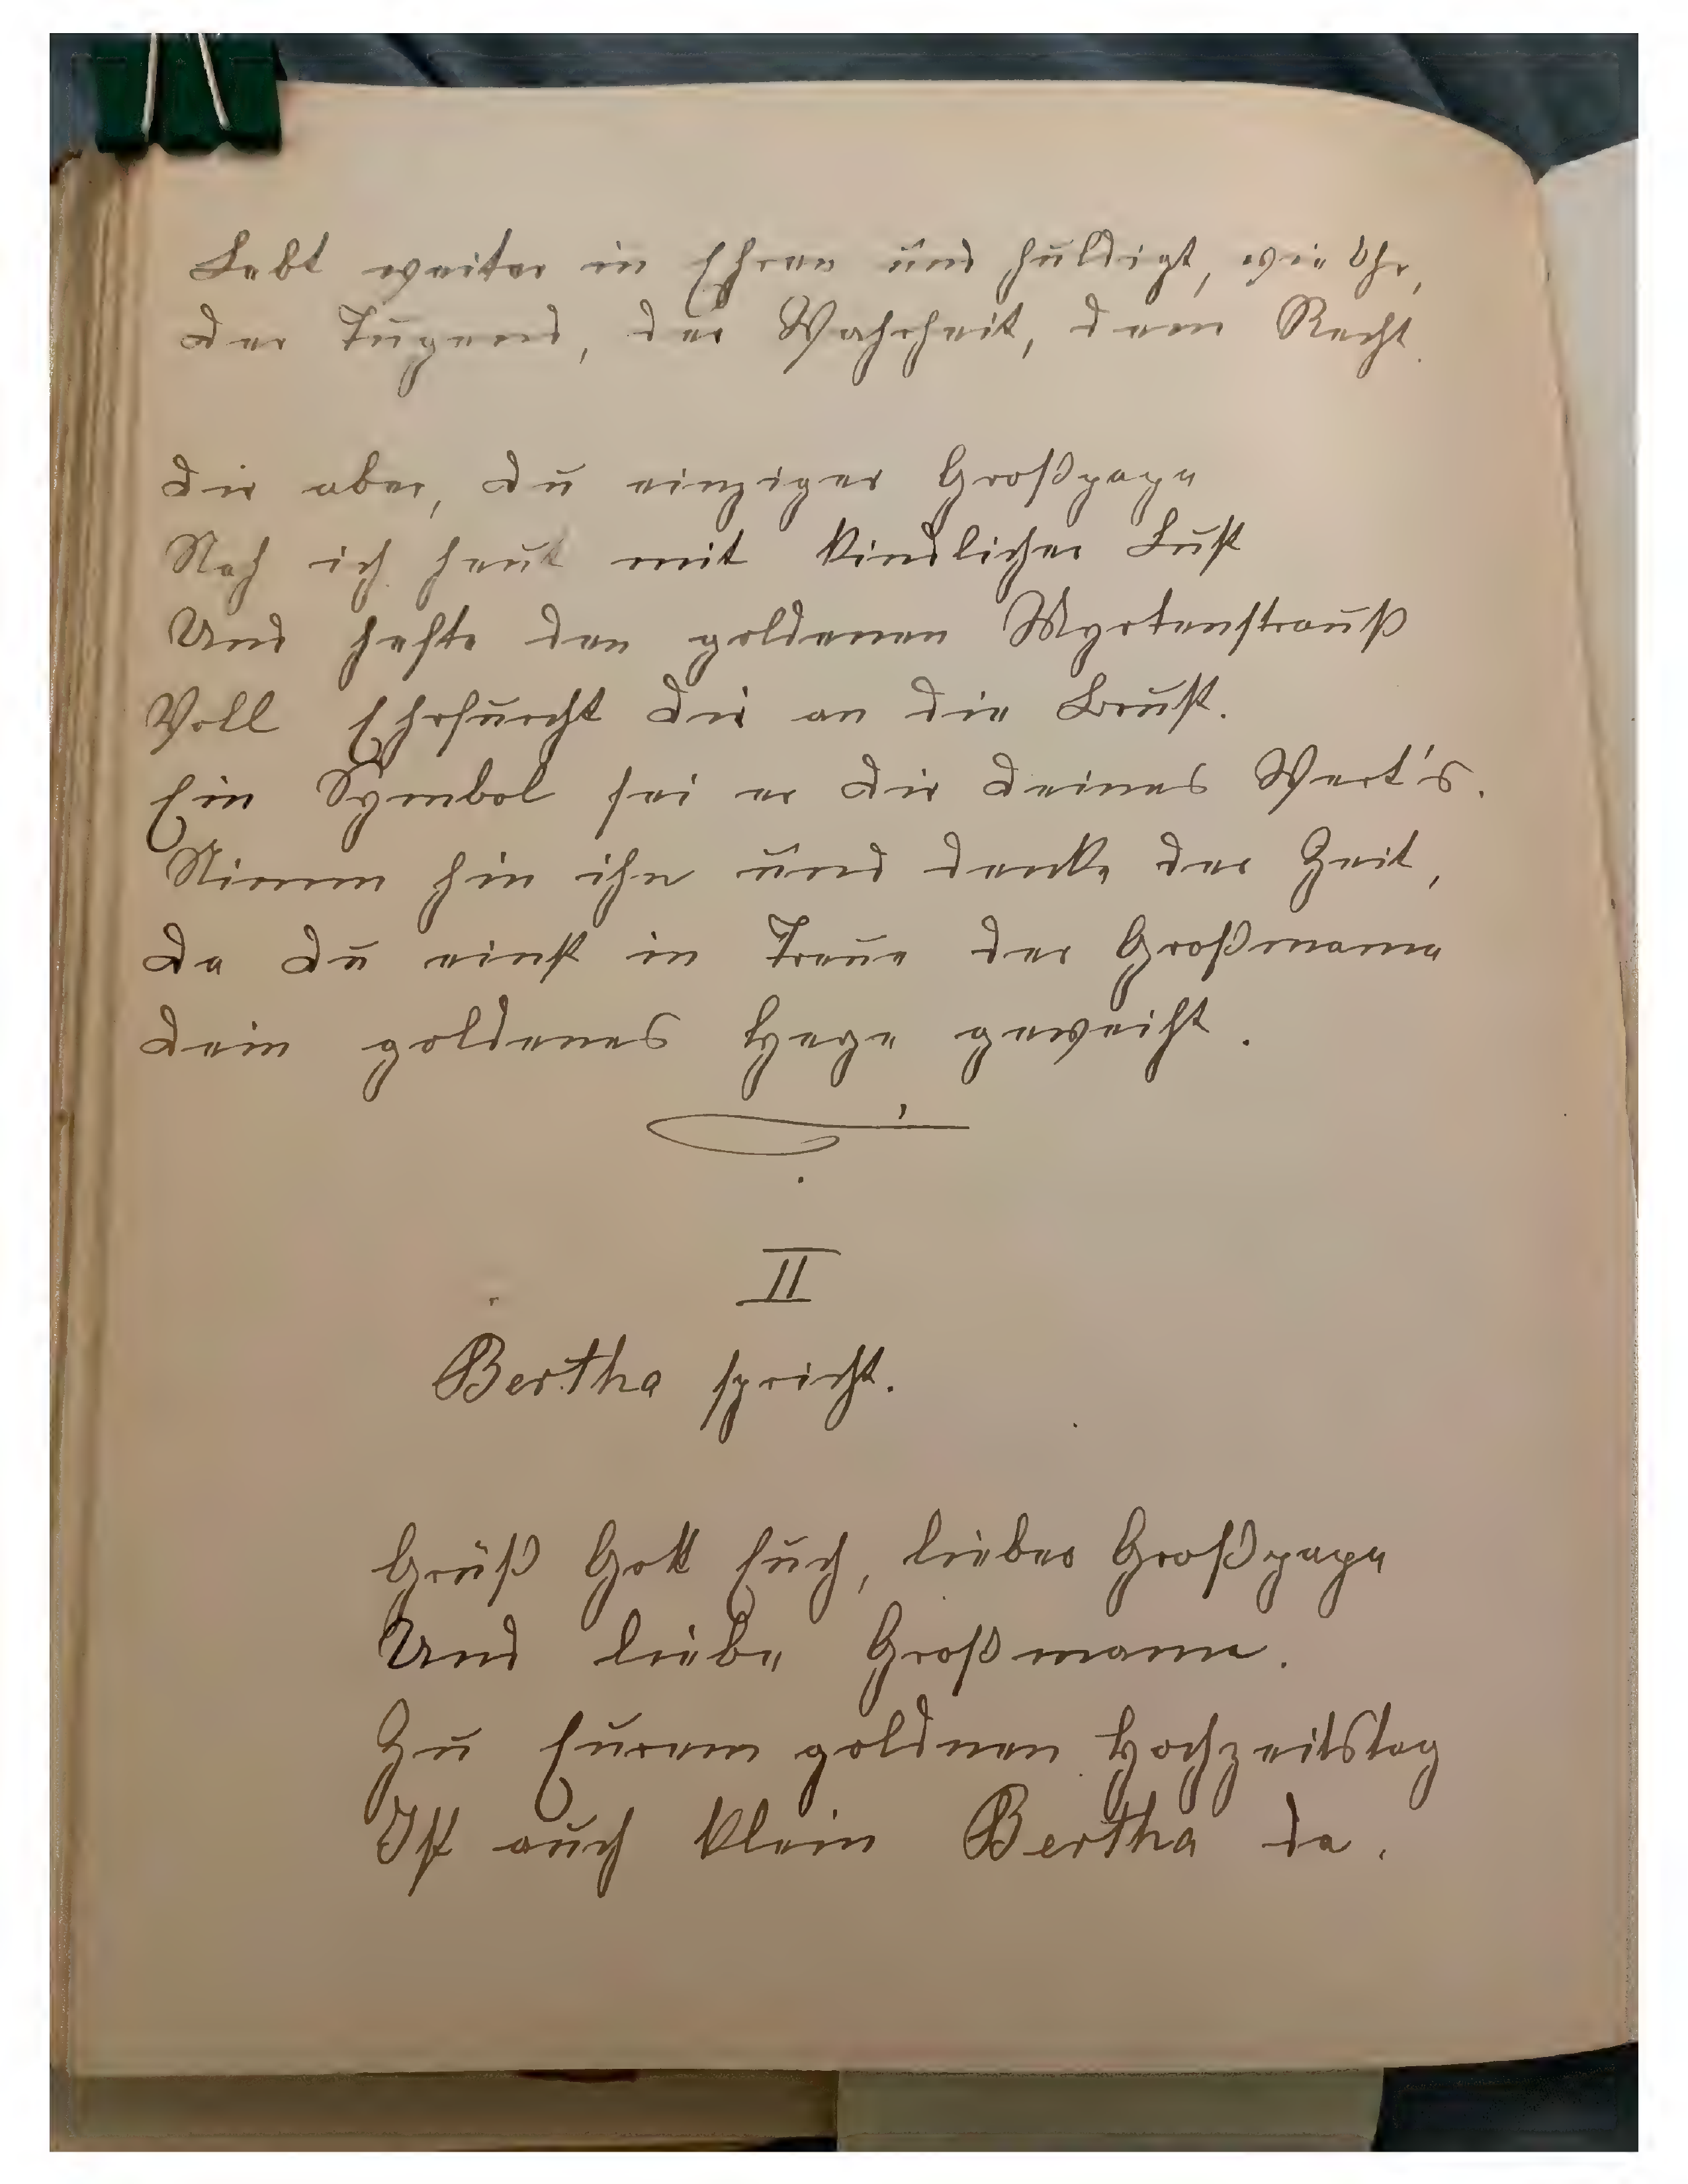 Lebt weiter in Ehren und huldigt, wie Ihr,
Der Tugend, der Wahrheit, dem Recht.
Dir aber, Du einziger Großpapa
Nah ich heut mit kindlicher Lust
Und hefte den goldenen Myrtenstrauß
Voll Ehrfurcht Dir an die Brust.
Ein Symbol sei er Dir Deines Wert's.
Nimm hin ihn und denke der Zeit,
Da Du einst in Treue der Großmama
Dein goldenes Herze geweiht.
II
Bertha spricht.
Grüß Gott Euch, lieber Großpapa
Und liebe Großmama.
Zu Eurem goldnen Hochzeitstag
Ist auch klein Bertha da.